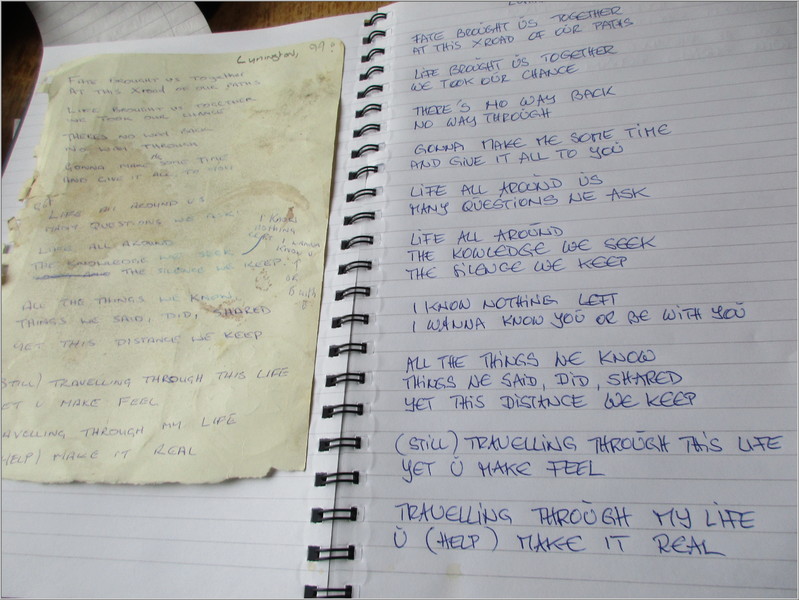 Lymington, 99!
FATE BROUGHT US TOGETHER
AT THIS XROAD OF OUR PATHS
LIFE BROUGHT US TOGETHER
WE TOOK OUR CHANCE
THERES NO WAY BACK
NO WAY THROUGH
GONNA MAKE ME SOME TIME
AND GIVE IT ALL TO YOU
LIFE ALL AROUND US
MANY QUESTIONS WE ASK
LIFE ALL AROUND
THE KNOWLEDGE WE SEEK
THE SILENCE WE KEEP
I KNOW
NOTHING
LEFT I WANNA
KNOW U
OR
B with
U
ALL THE THINGS WE KNOW
THINGS WE SAID, DID, SHARED
YET THIS DISTANCE WE KEEP
(STILL) TRAVELLING THROUGH THIS LIFE
YET U MAKE FEEL
TRAVELLING THROUGH MY LIFE
(HELP) MAKE IT REAL
FATE BROUGHT ÜS TOGETHER
AT THIS XROAD OF OÜR PATHS
LIFE BROUGHT ÜS TOGETHER
WE TOOK OÜR CHANCE
THERE'S NO WAY BACK
NO WAY THROÜGH
GONNA MAKE ME SOME TIME
AND GIVE IT ALL TO YOÜ
LIFE ALL AROÜND ÜS
MANY QÜESTIONS WE ASK
LIFE ALL AROÜND
THE KOWLEDGE WE SEEK
THE SILENGE WE KEEP
I KNOW NOTHING LEFT
I WANNA KNOW YOÜ OR BE WITH YOÜ
ALL THE THINGS WE KNOW
THINGS WE SAID, DID, SHARED
YET THIS DISTANCE WE KEEP
(STILL) TRAVELLING THROÜGH THIS LIFE
YET Ü MAKE FEEL
TRAVELLING THROÜGH MY LIFE
Ü (HELP) MAKE IT REAL